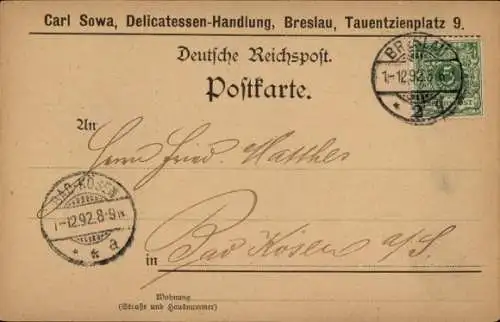 Carl Sowa, Delicatessen-Handlung, Breslau, Tauentzienplatz 9.
Deutsche Reichspost.
Postkarte.
BRESLAU
1-12.92.8-
* 2
5
An
Herrn Fried. Matthes
BAD-KÖSEN
1-12.92.8-9N
* * a
in Bad Kösen a/S.
Wohnung
(Straße und Hausnummer)